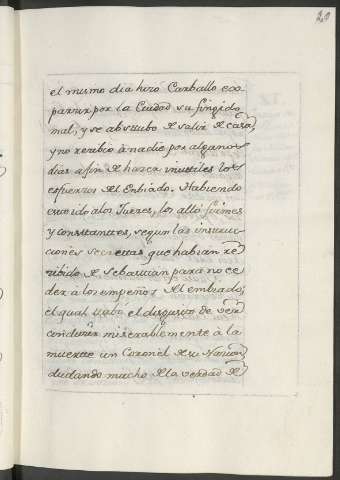 20
el mismo dia hizo Carballo ex
parzir por la Ciudad su fingido
mal, y se abstubo de salir de casa,
y no recibió à nadie por algunos
dias a fin de hazer inutiles los
esfuerzos del Enbiado. Habiendo
ido a los Jueces, los alló firmes
y constantes, segun las instruc
ciones secretas que habian re
cibido de Sebastian para no ce
der à los empeños del embiado,
el qual tubo el disgusto de ver
conducir miserablemente à la
muerte un Coronel de su Nacion
dudando mucho de la verdad de